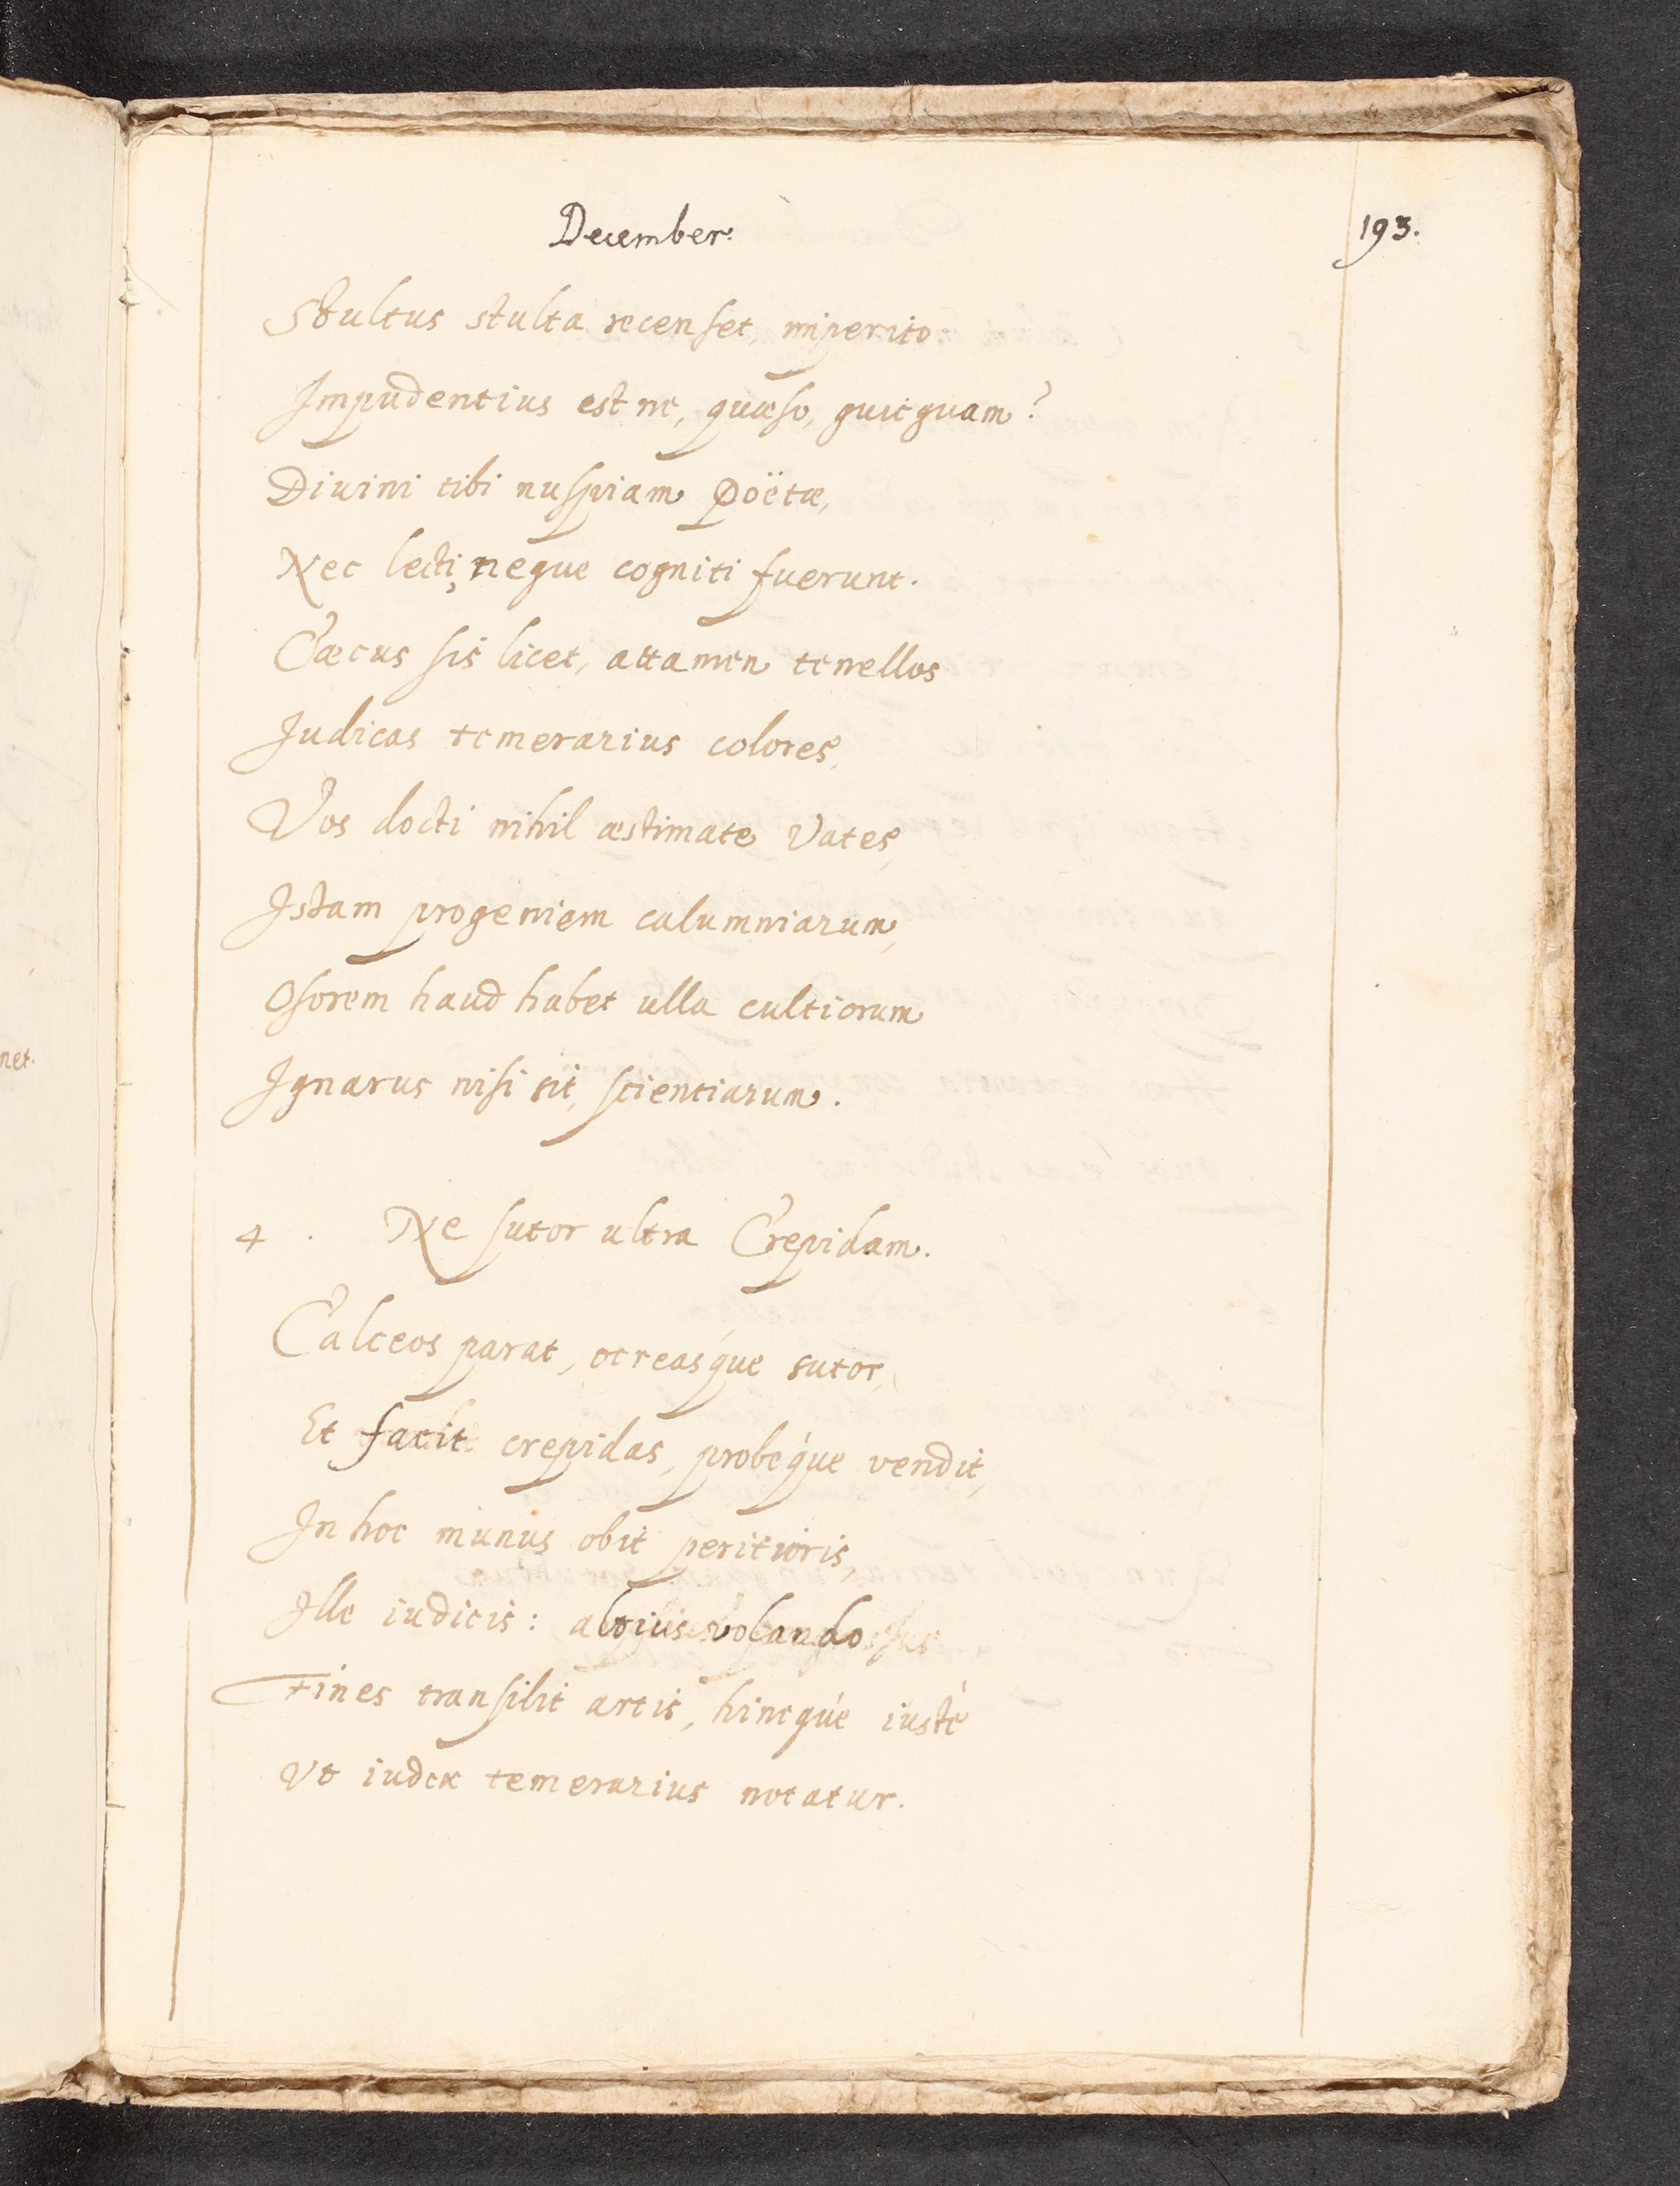 December.
193.
Stultus stulta recenset, imperito
Impudentius est ne, quæso, quicquam?
Diuini tibi nuspiam Poëtæ,
Nec lecti, neque cogniti fuerunt.
Cæcus sis licet, attamen tenellos
Iudicas temerarius colores,
Vos docti nihil æstimate Vates,
Istam progeniem calumniarum,
Osorem haud habet ulla cultiorum
Ignarus nisi sit, scientiarum.
4. Ne sutor ultra Crepidam.
Calceos parat, ocreasque sutor,
Et facit crepidas, probeque vendit,
In hoc munus obit peritioris,
Ille iudicis: altius volando
Fines transilit artis, hincque iustè
Vt iudex temerarius notatur.
net.